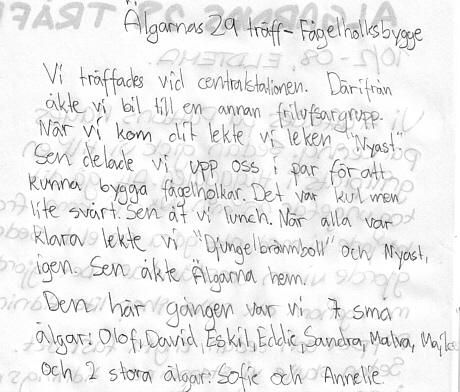 Älgarnas 29 träff - Fågelholksbygge
Vi träffades vid centralstationen. Därifrån
åkte vi bil till en annan frilufsargrupp.
När vi kom dit lekte vi leken "Nyast".
Sen delade vi upp oss i par för att
kunna bygga fågelholkar. Det var kul men
lite svårt. Sen åt vi lunch. När alla var
klara lekte vi "Djungelbrännboll" och Nyast,
igen. Sen åkte Älgarna hem.
Den här gången var vi 7 små
älgar: Olof, David, Eskil, Eddie, Sandra, Malva,
och 2 stora älgar: Sofie och Annelie.